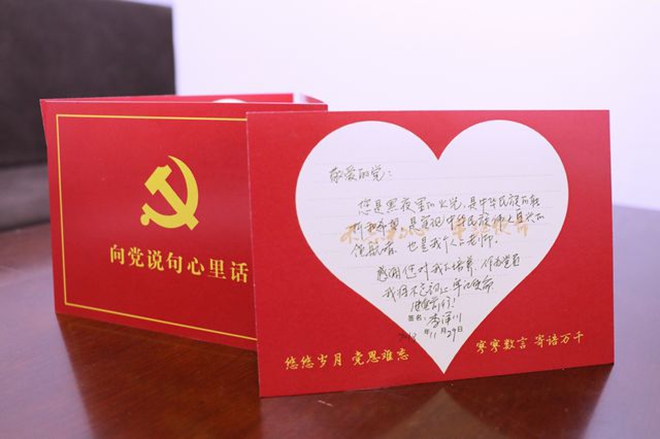 向党说句心里话
敬爱的党：
您是黑夜里的火炬，是中华民族的
和希望，是实现中华民族伟大复兴的
领航者，也是我人生老师。
感谢您对我的培养，作为党员
我将不忘初心，牢记使命
签名：李泽川
年11月29日
悠悠岁月 党恩难忘
寥寥数言 寄语万千